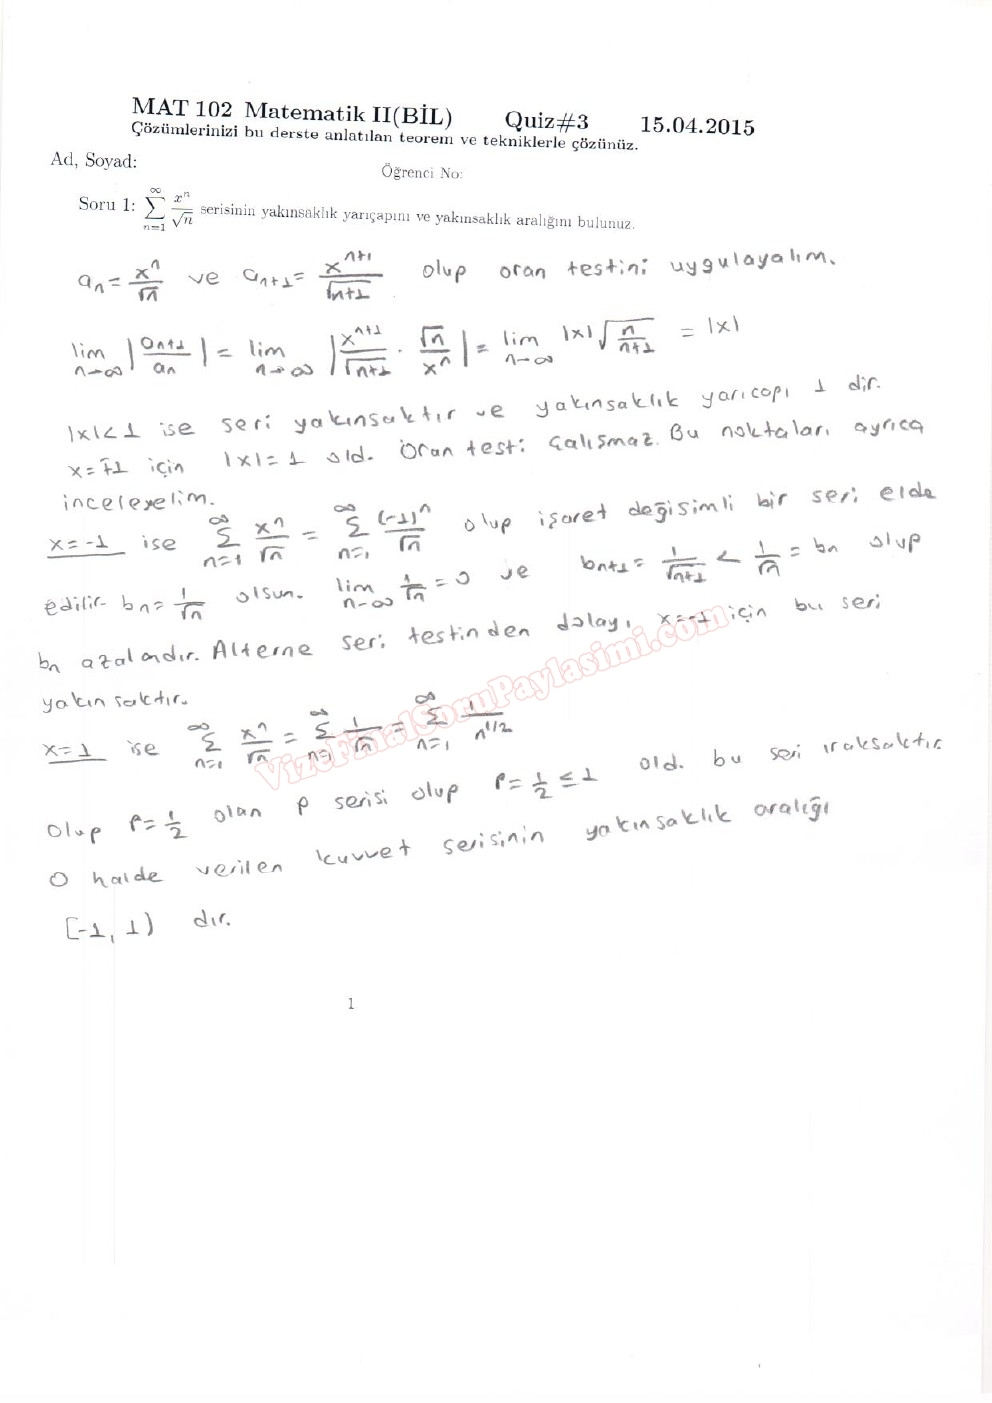 MAT 102 Matematik II(BİL) Quiz#3 15.04.2015
Çözümlerinizi bu derste anlatılan teorem ve tekniklerle çözünüz.
Ad, Soyad: Öğrenci No:
Soru 1: ∑_{n=1}^{∞} x^n/√n serisinin yakınsaklık yarıçapını ve yakınsaklık aralığını bulunuz.
a_n = x^n/√n ve a_{n+1} = x^{n+1}/√(n+1) olup oran testini uygulayalım.
lim_{n→∞} |a_{n+1}/a_n| = lim_{n→∞} |x^{n+1}/√(n+1) · √n/x^n| = lim_{n→∞} |x| √(n/(n+1)) = |x|
|x|<1 ise seri yakınsaktır ve yakınsaklık yarıçapı 1 dir.
x=∓1 için |x|=1 old. Oran testi çalışmaz. Bu noktaları ayrıca
inceleyelim.
x=-1 ise ∑_{n=1}^{∞} x^n/√n = ∑_{n=1}^{∞} (-1)^n/√n olup işaret değişimli bir seri elde
edilir. b_n = 1/√n olsun. lim_{n→∞} 1/√n = 0 ve b_{n+1} = 1/√(n+1) < 1/√n = b_n olup
b_n azalandır. Alterne seri testinden dolayı x=-1 için bu seri
yakınsaktır.
x=1 ise ∑_{n=1}^{∞} x^n/√n = ∑_{n=1}^{∞} 1/√n = ∑_{n=1}^{∞} 1/n^{1/2}
Olup P=1/2 olan p serisi olup P=1/2 ≤ 1 old. bu seri ıraksaktır.
O halde verilen kuvvet serisinin yakınsaklık aralığı
[-1, 1) dır.
VizeFinalSoruPaylasimi.com
1